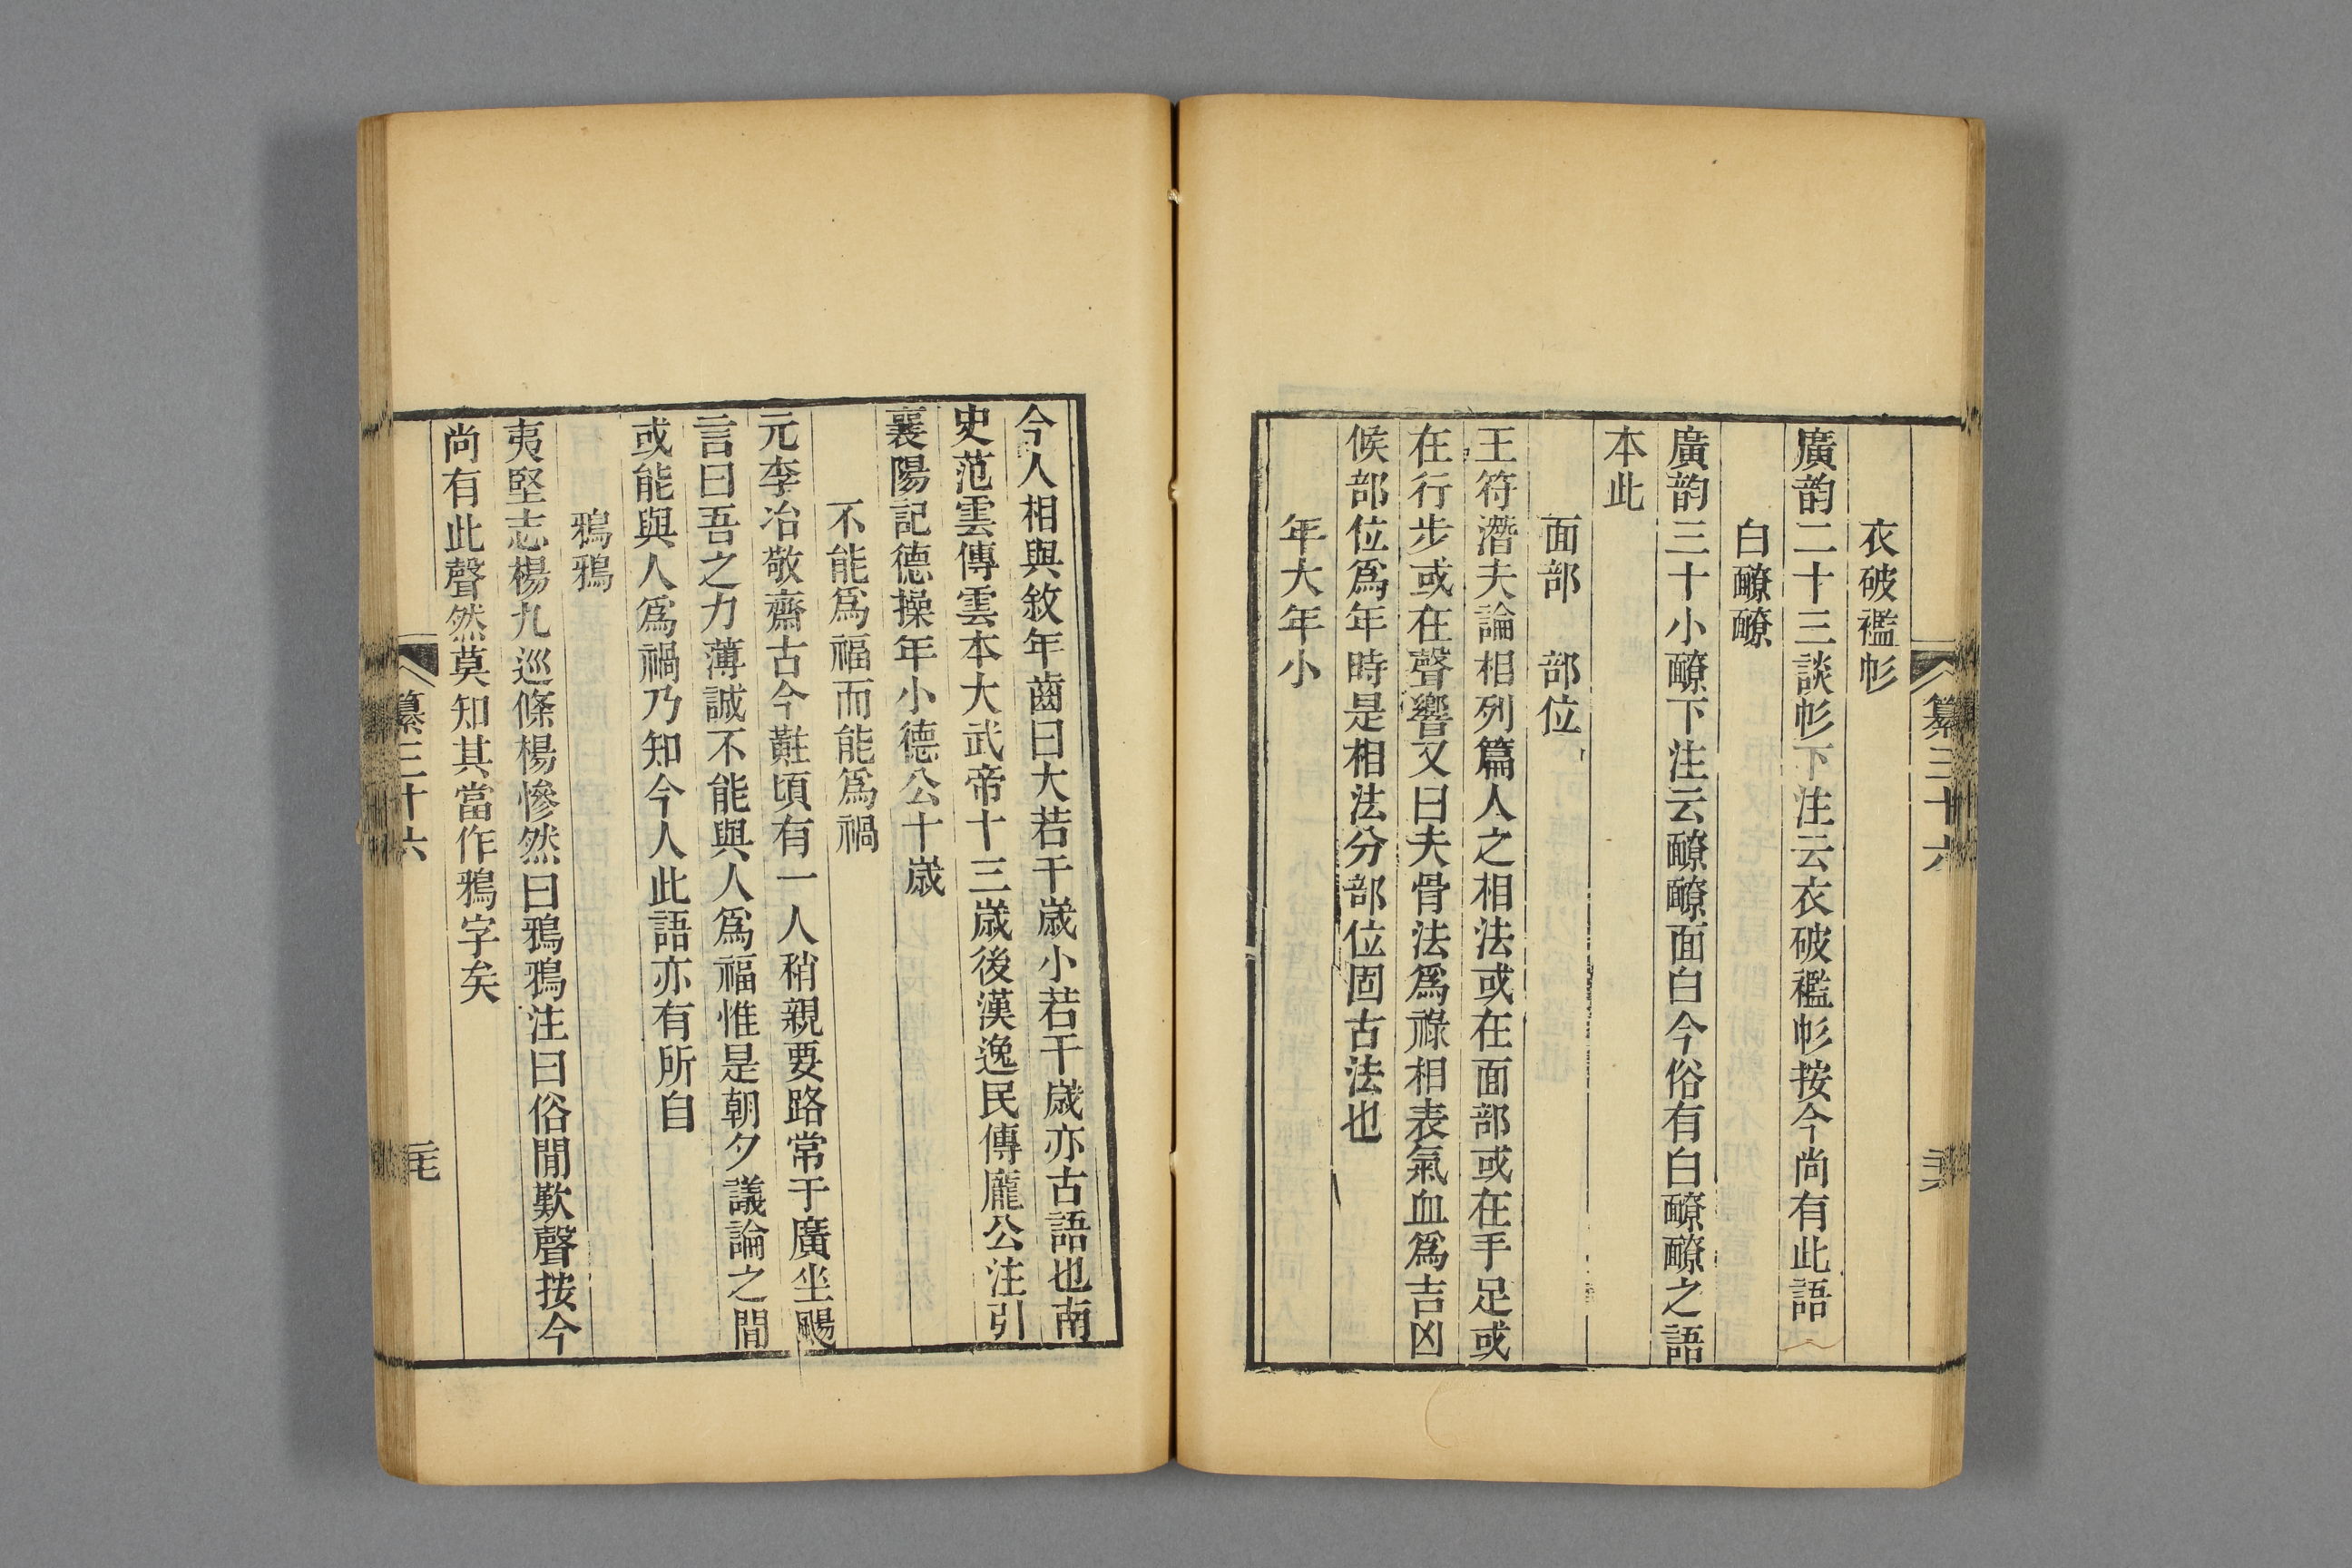 纂三十六
衣破襤㡜
廣韵二十三談㡜下注云衣破襤㡜按今尚有此語
白𩉊𩉊
廣韵三十小𩉊下注云𩉊𩉊面白今俗有白𩉊𩉊之語
本此
面部 部位
王符潛夫論相列篇人之相法或在面部或在手足或
在行步或在聲響又曰夫骨法爲祿相表氣血爲吉凶
候部位爲年時是相法分部位固古法也
年大年小
今人相與敘年齒曰大若干歲小若干歲亦古語也南
史范雲傳雲本大武帝十三歲後漢逸民傳龐公注引
襄陽記德操年小德公十歲
不能爲福而能爲禍
元李冶敬齋古今黈頃有一人稍親要路常于廣坐颺
言曰吾之力薄誠不能與人爲福惟是朝夕議論之間
或能與人爲禍乃知今人此語亦有所自
鴉鴉
夷堅志楊九巡條楊慘然曰鴉鴉注曰俗閒歎聲按今
尚有此聲然莫知其當作鴉字矣
纂三十六